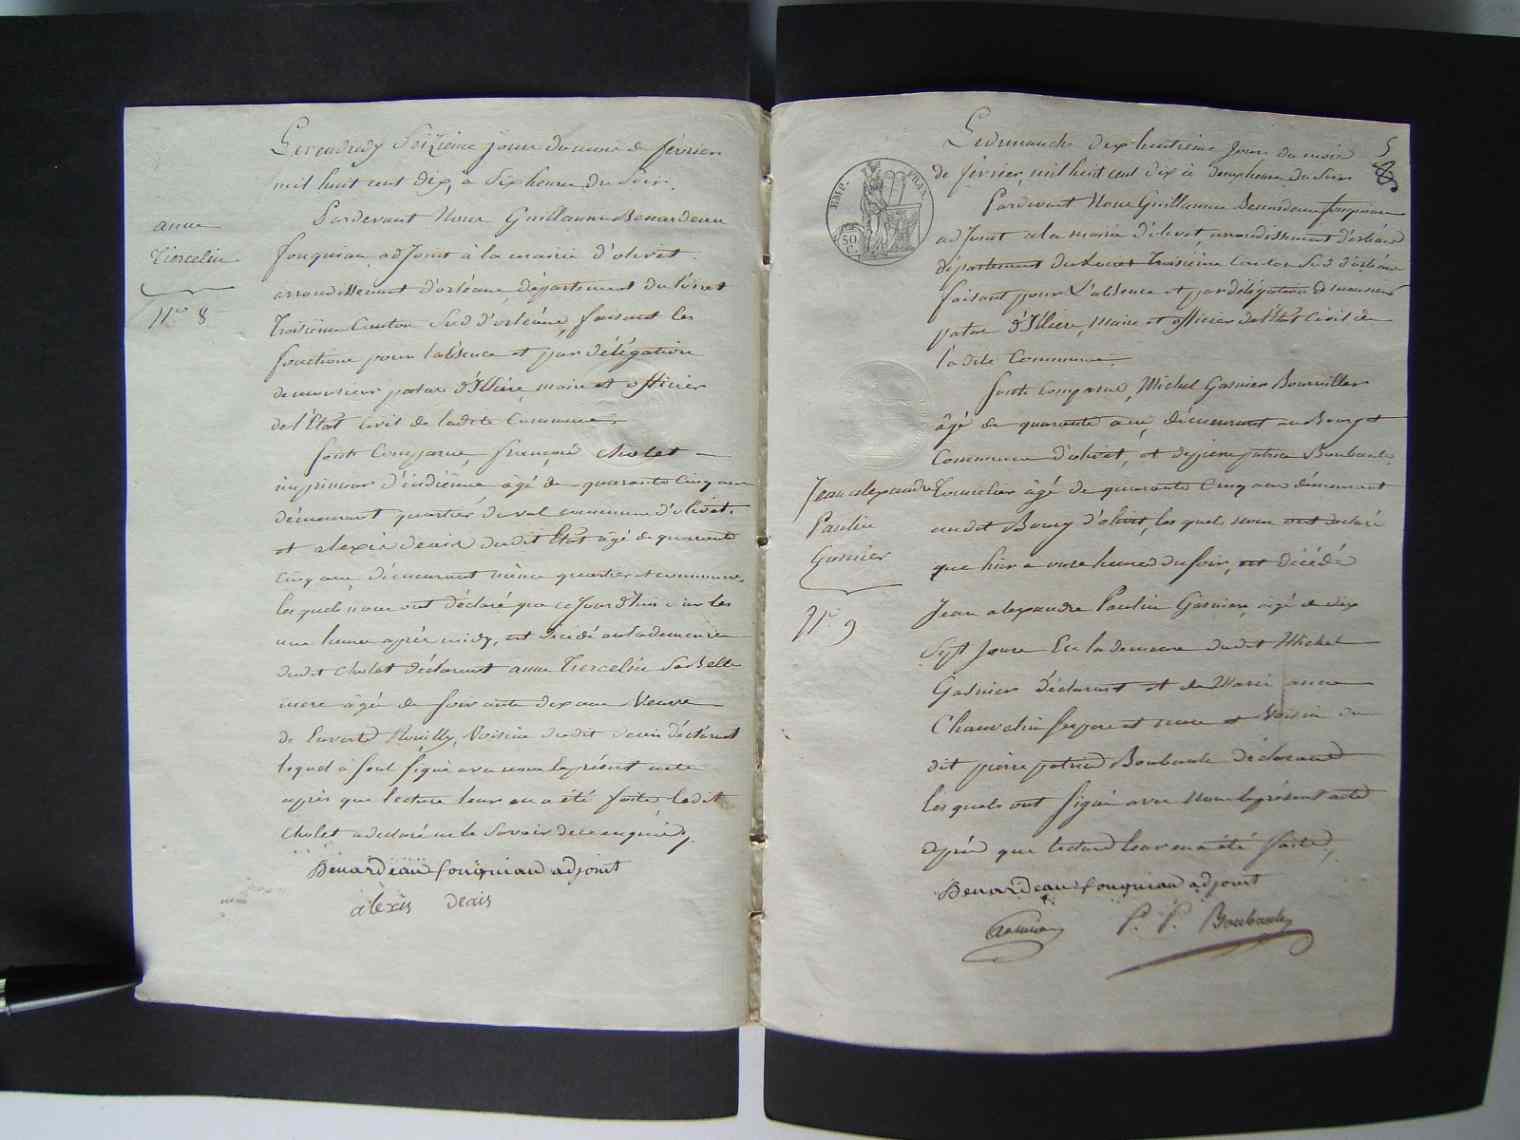 Le vendredy Seizième jour du mois de février
mil huit cent dix, à Six heures du Soir.
Pardevant Nous Guillaume Benardeau
anne
fouquiau adjoint à la mairie d'olivet
Tiercelin
arrondissement d'orléans, département du Loiret
N.o 8
Troisième Canton Sud d'orléans, faisant les
fonctions pour l'absence et par délégation
de monsieur patas d'Illiers, maire et officier
de l'État Civil de ladite Commune,
Sont Comparus, françois cholet
imprimeur d'indienne âgé de quarante Cinq ans
démeurant quartier du val commune d'olivet.
et alexis denis dudit État âgé de quarante
Cinq ans, démeurant même quartier et commune,
les quels nous ont déclaré que ce Jourd'hui sur les
une heure après midy, est décédé en la demeure
dudit cholet déclarant anne Tiercelin Sa Belle
mere âgé de Soixante dix ans Veuve
de Rouilly, Voisine dudit denis déclarant
lequel à Seul Signé avec nous le présent acte
après que lecture leur en a été faite, ledit
cholet a déclaré ne le Savoir de ce enquis
Benardeau fouquiau adjoint
alexis denis
5
Le dimanche dix huitième Jour du mois
de février, mil huit cent dix à deux heures du Soir
EMP. FRAN.
50 C.
Pardevant Nous Guillaume Benardeau fouquiau
adjoint de la mairie d'olivet, arrondissement d'orléans
département du Loiret Troisième Canton Sud d'orléans
faisant pour L'absence et par délégation de monsieur
patas d'Illiers, Maire et officier de l'État Civil de
la dite Commune
Sont Comparus, Michel Gasnier Bourrillier
âgé de quarante ans, démeurant au Bourg et
Commune d'olivet, et de pierre patrice Boubault
Jean alexandre
Paulin
Gasnier
N.o 9
Tonnelier âgé de quarante Cinq ans démeurant
audit Bourg d'olivet, les quels nous ont déclaré
que hier a onze heures du Soir, est décédé
Jean alexandre Paulin Gasnier, âgé de dix
Sept Jours En la demeure dudit Michel
Gasnier déclarant et de Marie anne
Chauvelin Ses pere et mere et Voisin du
dit pierre patrice Boubault déclarant
les quels ont Signé avec Nous le présent acte
après que lecture leur en a été faite,
Benardeau fouquiau adjoint
Gasnier P. P. Boubault